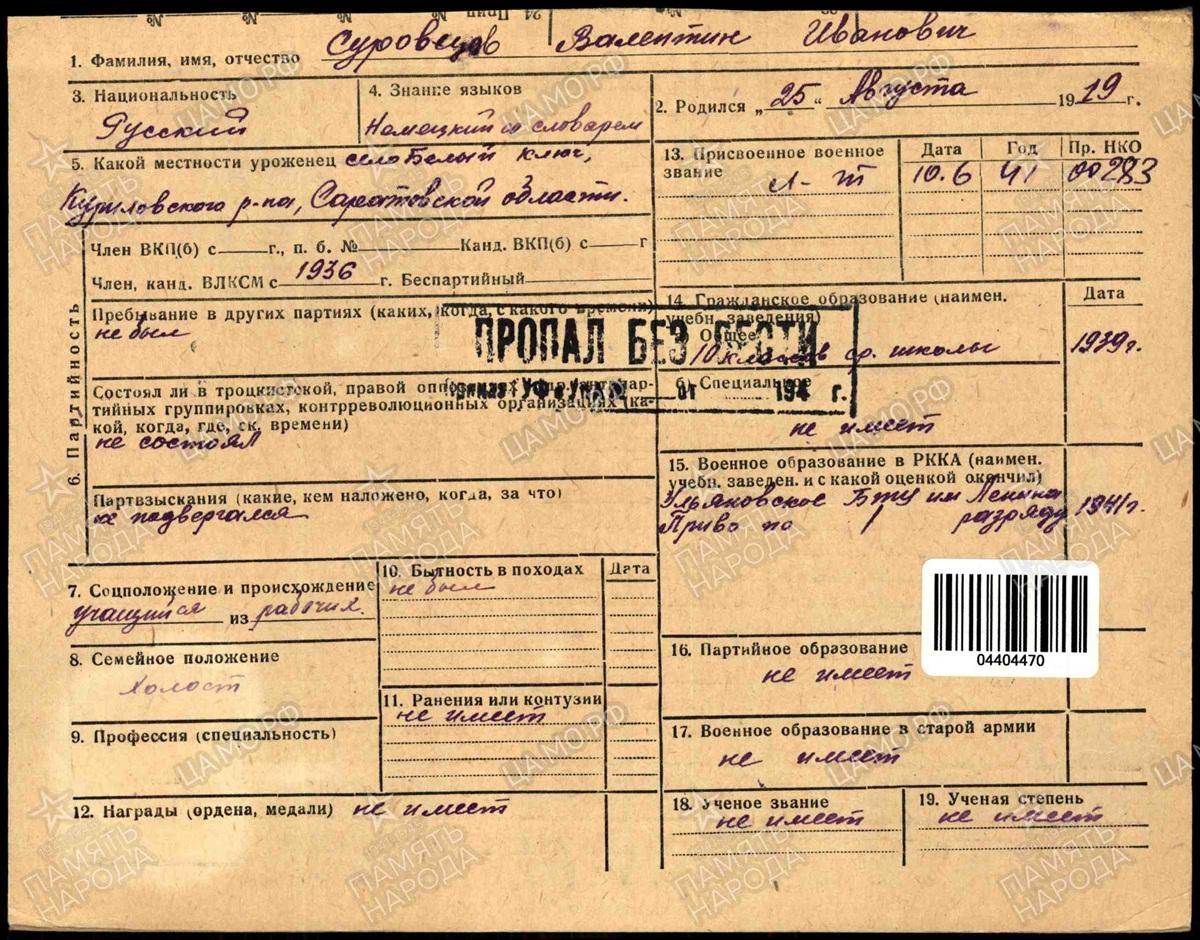 № Прип 24 № 
1. Фамилия, имя, отчество Суровцов Валентин Иванович
3. Национальность
Русский
4. Знание языков
Немецкий со словарем
2. Родился „25“ Августа 1919 г.
5. Какой местности уроженец село Белый ключ,
Куриловского р-на, Саратовской области.
13. Присвоенное военное
звание
Дата Год Пр. НКО
л-т 10.6 41 00283
6. Партийность
Член ВКП(б) с г., п. б. № Канд. ВКП(б) с г
Член, канд. ВЛКСМ с 1936 г. Беспартийный
Пребывание в других партиях (каких, когда, с какого времени)
не был
Состоял ли в троцкистской, правой
тийных группировках, контрреволюционных организациях (ка-
кой, когда, где, ск. времени)
не состоял
Партвзыскания (какие, кем наложено, когда, за что)
не подвергался
ПРОПАЛ БЕЗ ВЕСТИ
от 194 г.
14. Гражданское образование (наимен.
учебн. заведения)
Дата
Общее
10 классов ср. школы 1939 г.
б) Специальное
не имеет
15. Военное образование в РККА (наимен.
учебн. заведен. и с какой оценкой окончил)
Ульяновское БТУ им Ленина
Приво по 1 разряду 1941 г.
7. Соцположение и происхождение
учащийся из рабочих.
8. Семейное положение
Холост
9. Профессия (специальность)
10. Бытность в походах Дата
не был
11. Ранения или контузии
не имеет
12. Награды (ордена, медали) не имеет
04404470
16. Партийное образование
не имеет
17. Военное образование в старой армии
не имеет
18. Ученое звание
не имеет
19. Ученая степень
не имеет
ПАМЯТЬ НАРОДА
ЦАМО.РФ